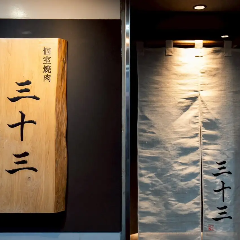 個室焼肉
三十三
三十三